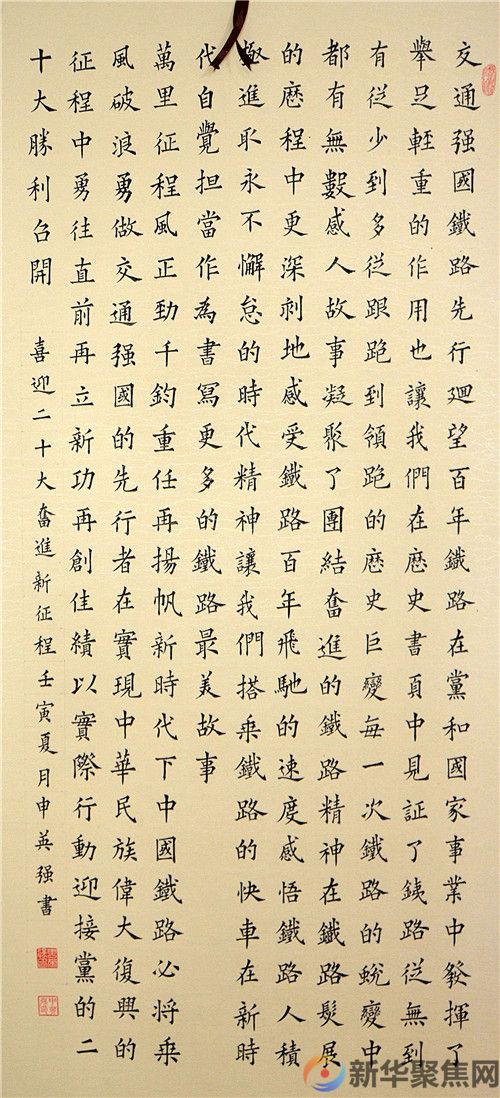 交通强國鐵路先行廻望百年鐵路在黨和國家事業中發揮了
舉足輕重的作用也讓我們在歷史書頁中見証了鉄路從無到
有從少到多從跟跑到領跑的歷史巨變每一次鐵路的蛻變中
都有無數感人故事凝聚了團結奮進的鐵路精神在鐵路髮展
的歷程中更深刺地感受鐵路百年飛馳的速度感悟鐵路人積
極進取永不懈怠的時代精神讓我們搭乘鐵路的快車在新時
代自覺担當作為書寫更多的鐵路最美故事
萬里征程風正勁千鈞重任再揚帆新時代下中國鐵路必將乘
風破浪勇做交通强國的先行者在實現中華民族偉大復興的
征程中勇往直前再立新功再創佳績以實際行動迎接黨的二
十大勝利召開
喜迎二十大奮進新征程壬寅夏月申英强書
新华聚焦网